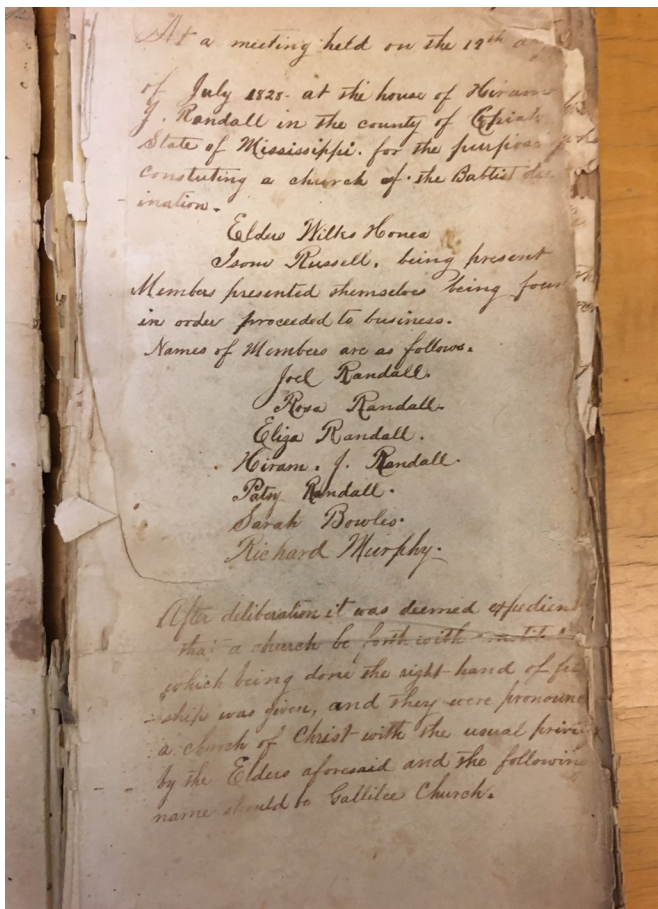 At a meeting held on the 19th
of July 1828. at the house of Hiram
J. Randall in the county of Copiah
State of Mississippi. for the purpose
constuting a church of the Baptist den
ination.
Elders Wilks Honea
Isom Russell. being present
Members presented themselves being foun
in order proceeded to business.
Names of Members are as follows.
Joel Randall.
Rosa Randall.
Eliza Randall.
Hiram. J. Randall.
Patsy Randall.
Sarah Bowles.
Richard Murphy.
After deliberation it was deemed expedient
that a church be forth with
which being done the right hand of fe
ship was given, and they were pronounc
a church of Christ with the usual privi
by the Elders aforesaid and the following
name should be Gallilee Church.